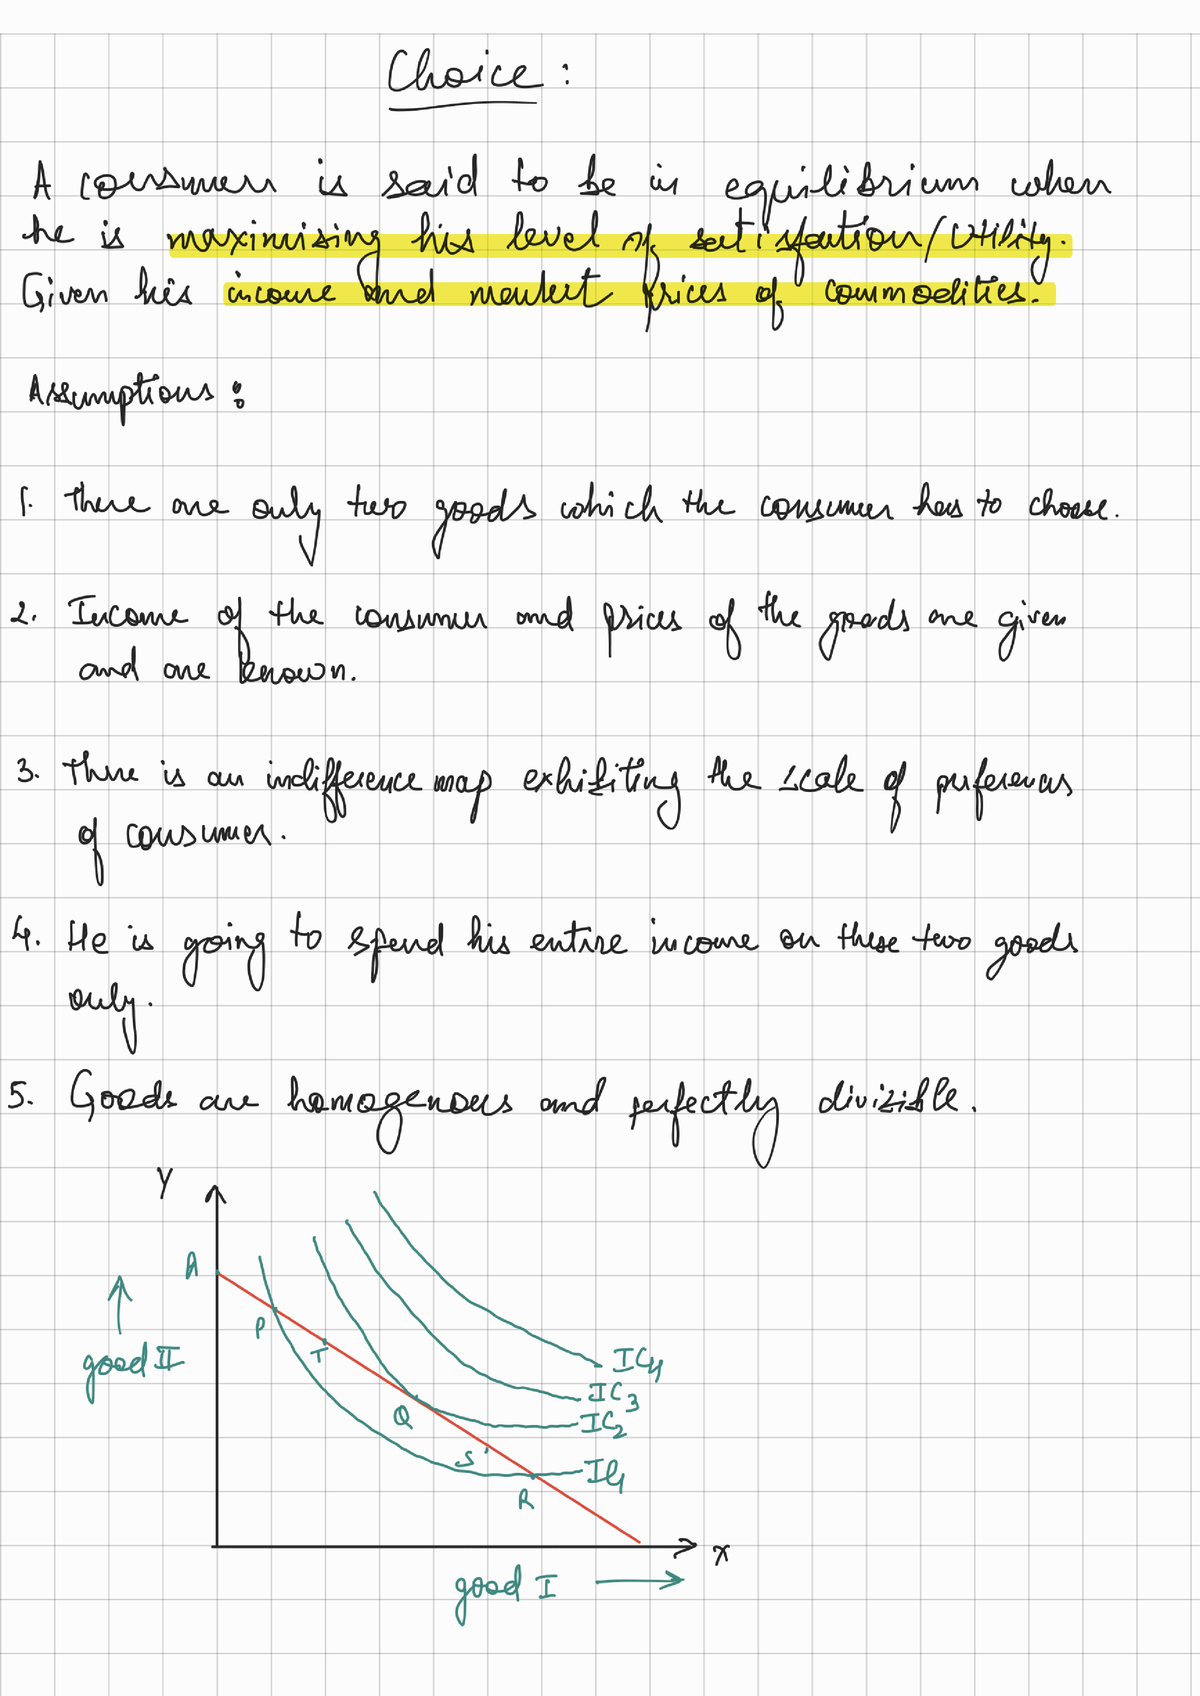 Choice :
A consumer is said to be in equilibrium when
he is maximising his level of satisfaction/Utility.
Given his income and market prices of commodities.
Assumptions :
1. There are only two goods which the consumer has to choose.
2. Income of the consumer and prices of the goods are given
and are known.
3. There is an indifference map exhibiting the scale of preferences
of consumer.
4. He is going to spend his entire income on these two goods
only.
5. Goods are homogenous and perfectly divisible.
Y
A
P
good II
T
IC4
IC3
Q
IC2
S
IC1
R
X
good I